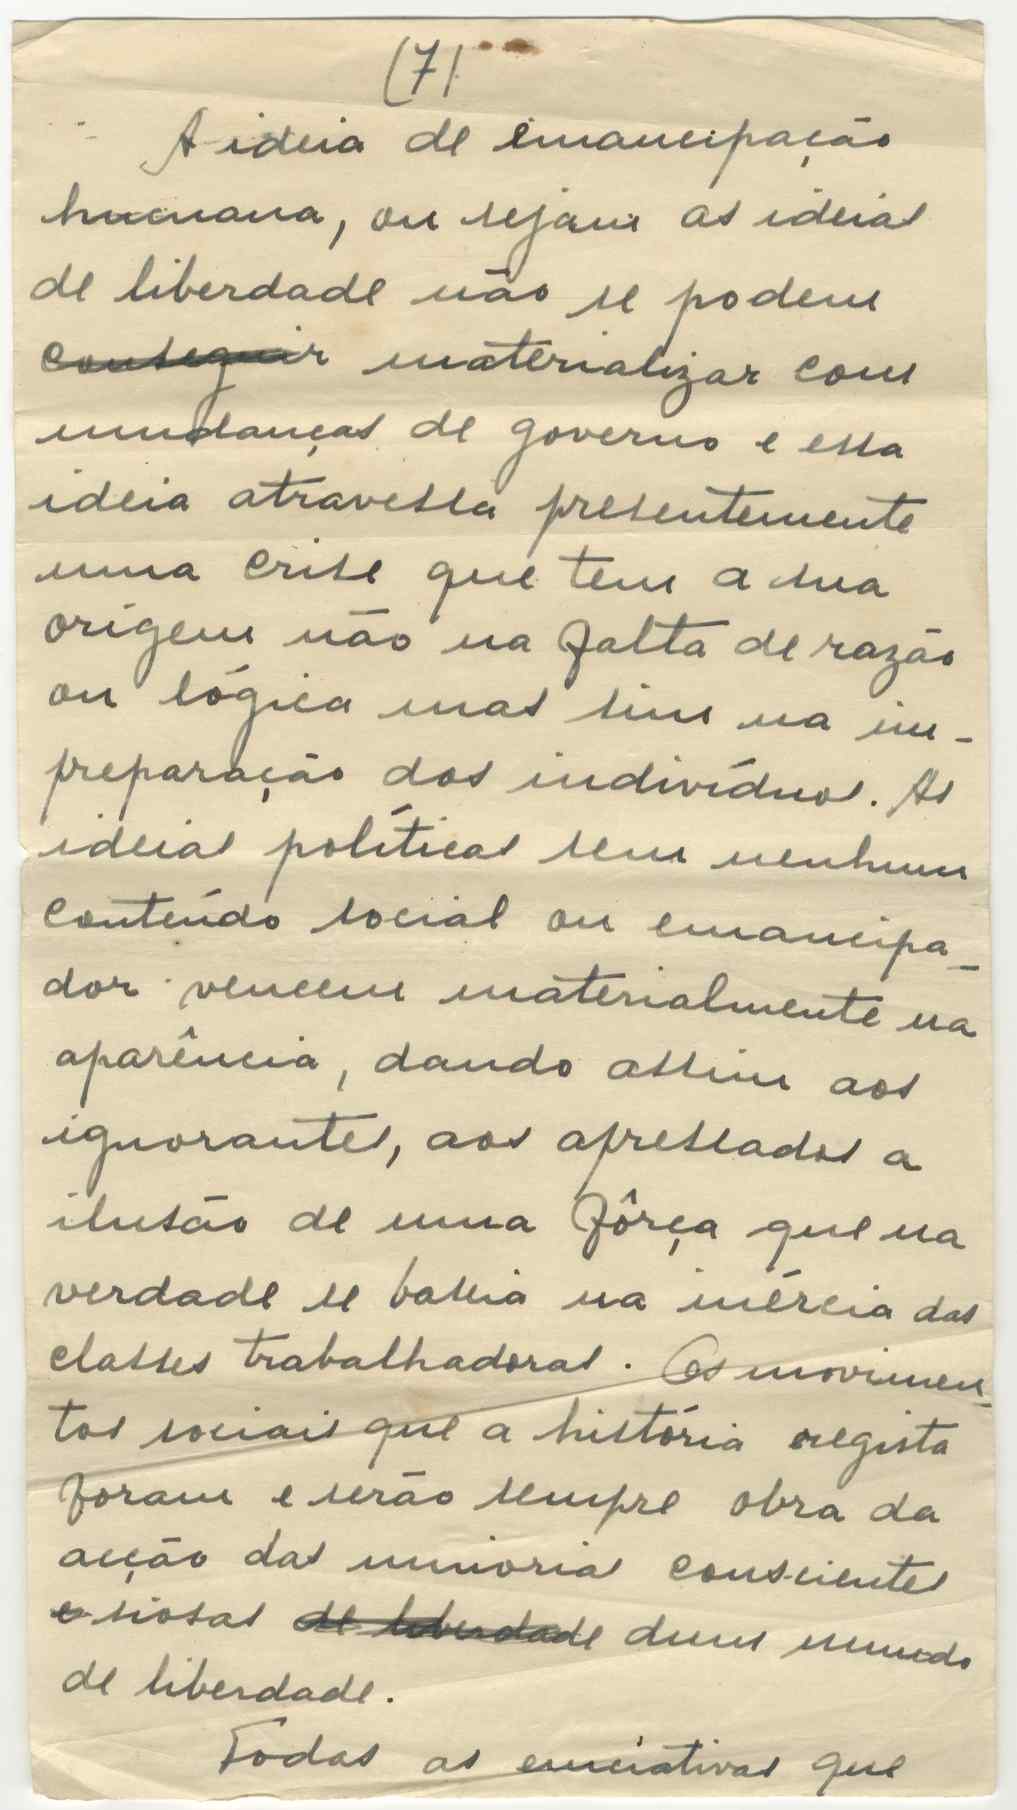 (7)
A ideia de emancipação
humana, ou sejam as ideias
de liberdade não se podem
conseguir materializar com
mudanças de governo e essa
ideia atravessa presentemente
uma crise que tem a sua
orígem não na falta de razão
ou lógica mas sim na im-
preparação dos indivíduos. As
ideias políticas sem nenhum
conteúdo social ou emancipa-
dor vencem materialmente na
aparência, dando assim aos
ignorantes, aos apressados a
ilusão de uma fôrça que na
verdade se bassia na inércia das
classes trabalhadoras. Os movimen-
tos sociais que a história regista
foram e serão sempre obra da
acção das minorias conscientes
e siosas de liberdade dum mundo
de liberdade.
Todas as enciativas que